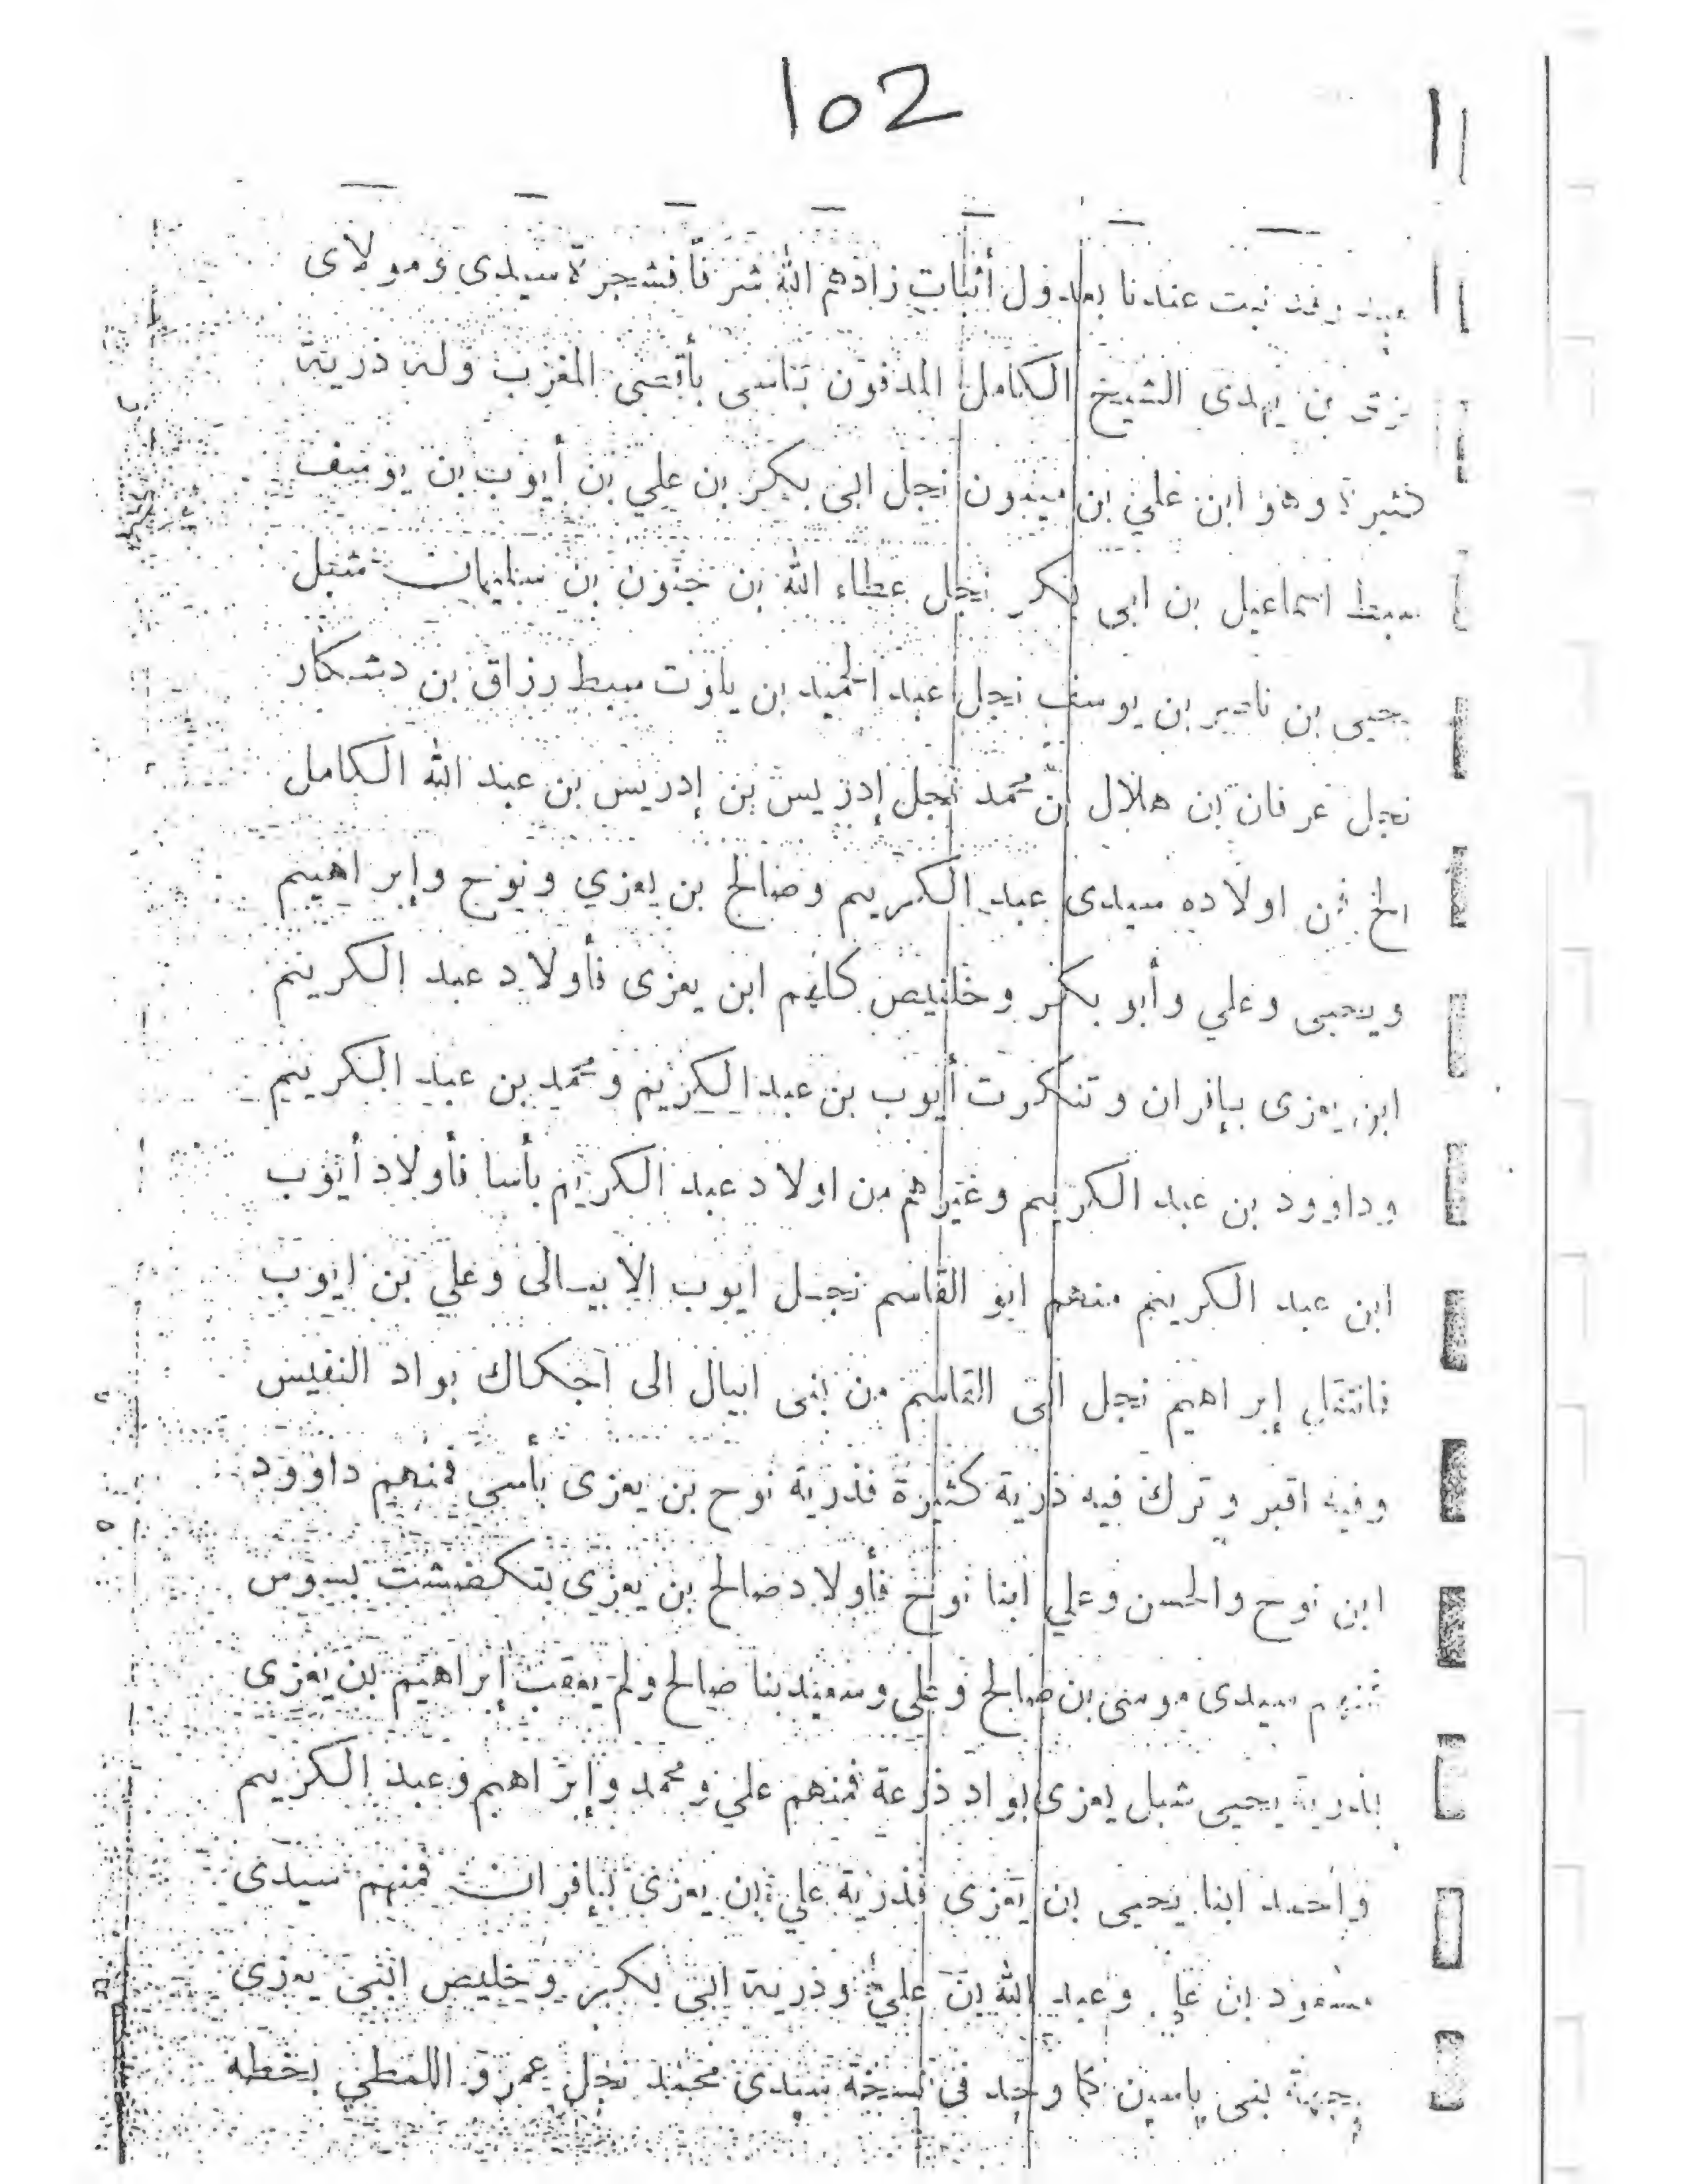 102
عندنا بعدول أثبات زادهم الله شرفا فشجرة سيدى ومولاى
بن يهدى الشيخ الكامل المدفون بأقصى المغرب وله ذرية
كثيرة وهو ابن علي بن ميدون نجل ابى بكر بن علي بن أيوب بن يوسف
سبط اسماعيل بن ابى بكر نجل عطاء الله بن حنون بن سليمان شبل
يحيى بن ناصر بن يوسف نجل عبد الحميد بن ياوت سبط رزاق بن دشكار
نجل عرفان بن هلال بن محمد نجل إدريس بن إدريس بن عبد الله الكامل
الخ فمن اولاده سيدى عبد الكريم وصالح بن يعزي ونوح وإبراهيم
ويحيى وعلي وأبو بكر وخليص كلهم ابن يعزى فأولاد عبد الكريم
ابن يعزى بإفران وتنكرت أيوب بن عبد الكريم ومحمد بن عبد الكريم
وداوود بن عبد الكريم وغيرهم من اولاد عبد الكريم بأسا فأولاد أيوب
ابن عبد الكريم منهم ابو القاسم نجل ايوب الابيالى وعلي بن ايوب
فانتقل إبراهيم نجل ابى القاسم من بنى ابيال الى احكاك بواد النفيس
وفيه اقبر وترك فيه ذرية كثيرة فذرية نوح بن يعزى بأسى فمنهم داوود
ابن نوح والحسن وعلي ابنا نوح فأولاد صالح بن يعزى بتكضشت بسوس
فمنهم سيدى موسى بن صالح وعلى وسعيد بنا صالح ولم يعقب إبراهيم بن يعزى
فذرية يحيى شبل يعزى بواد ذرعة فمنهم علي ومحمد وإبراهيم وعبد الكريم
وأحمد ابنا يحيى بن يعزى فذرية علي بن يعزى بإفران فمنهم سيدى
مسعود بن علي وعبد الله بن علي وذرية ابى بكر وخليص ابنى يعزى
بجهة بنى ياسين كما وجد فى نسخة سيدى محمد نجل عمرو اللمطي بخطه